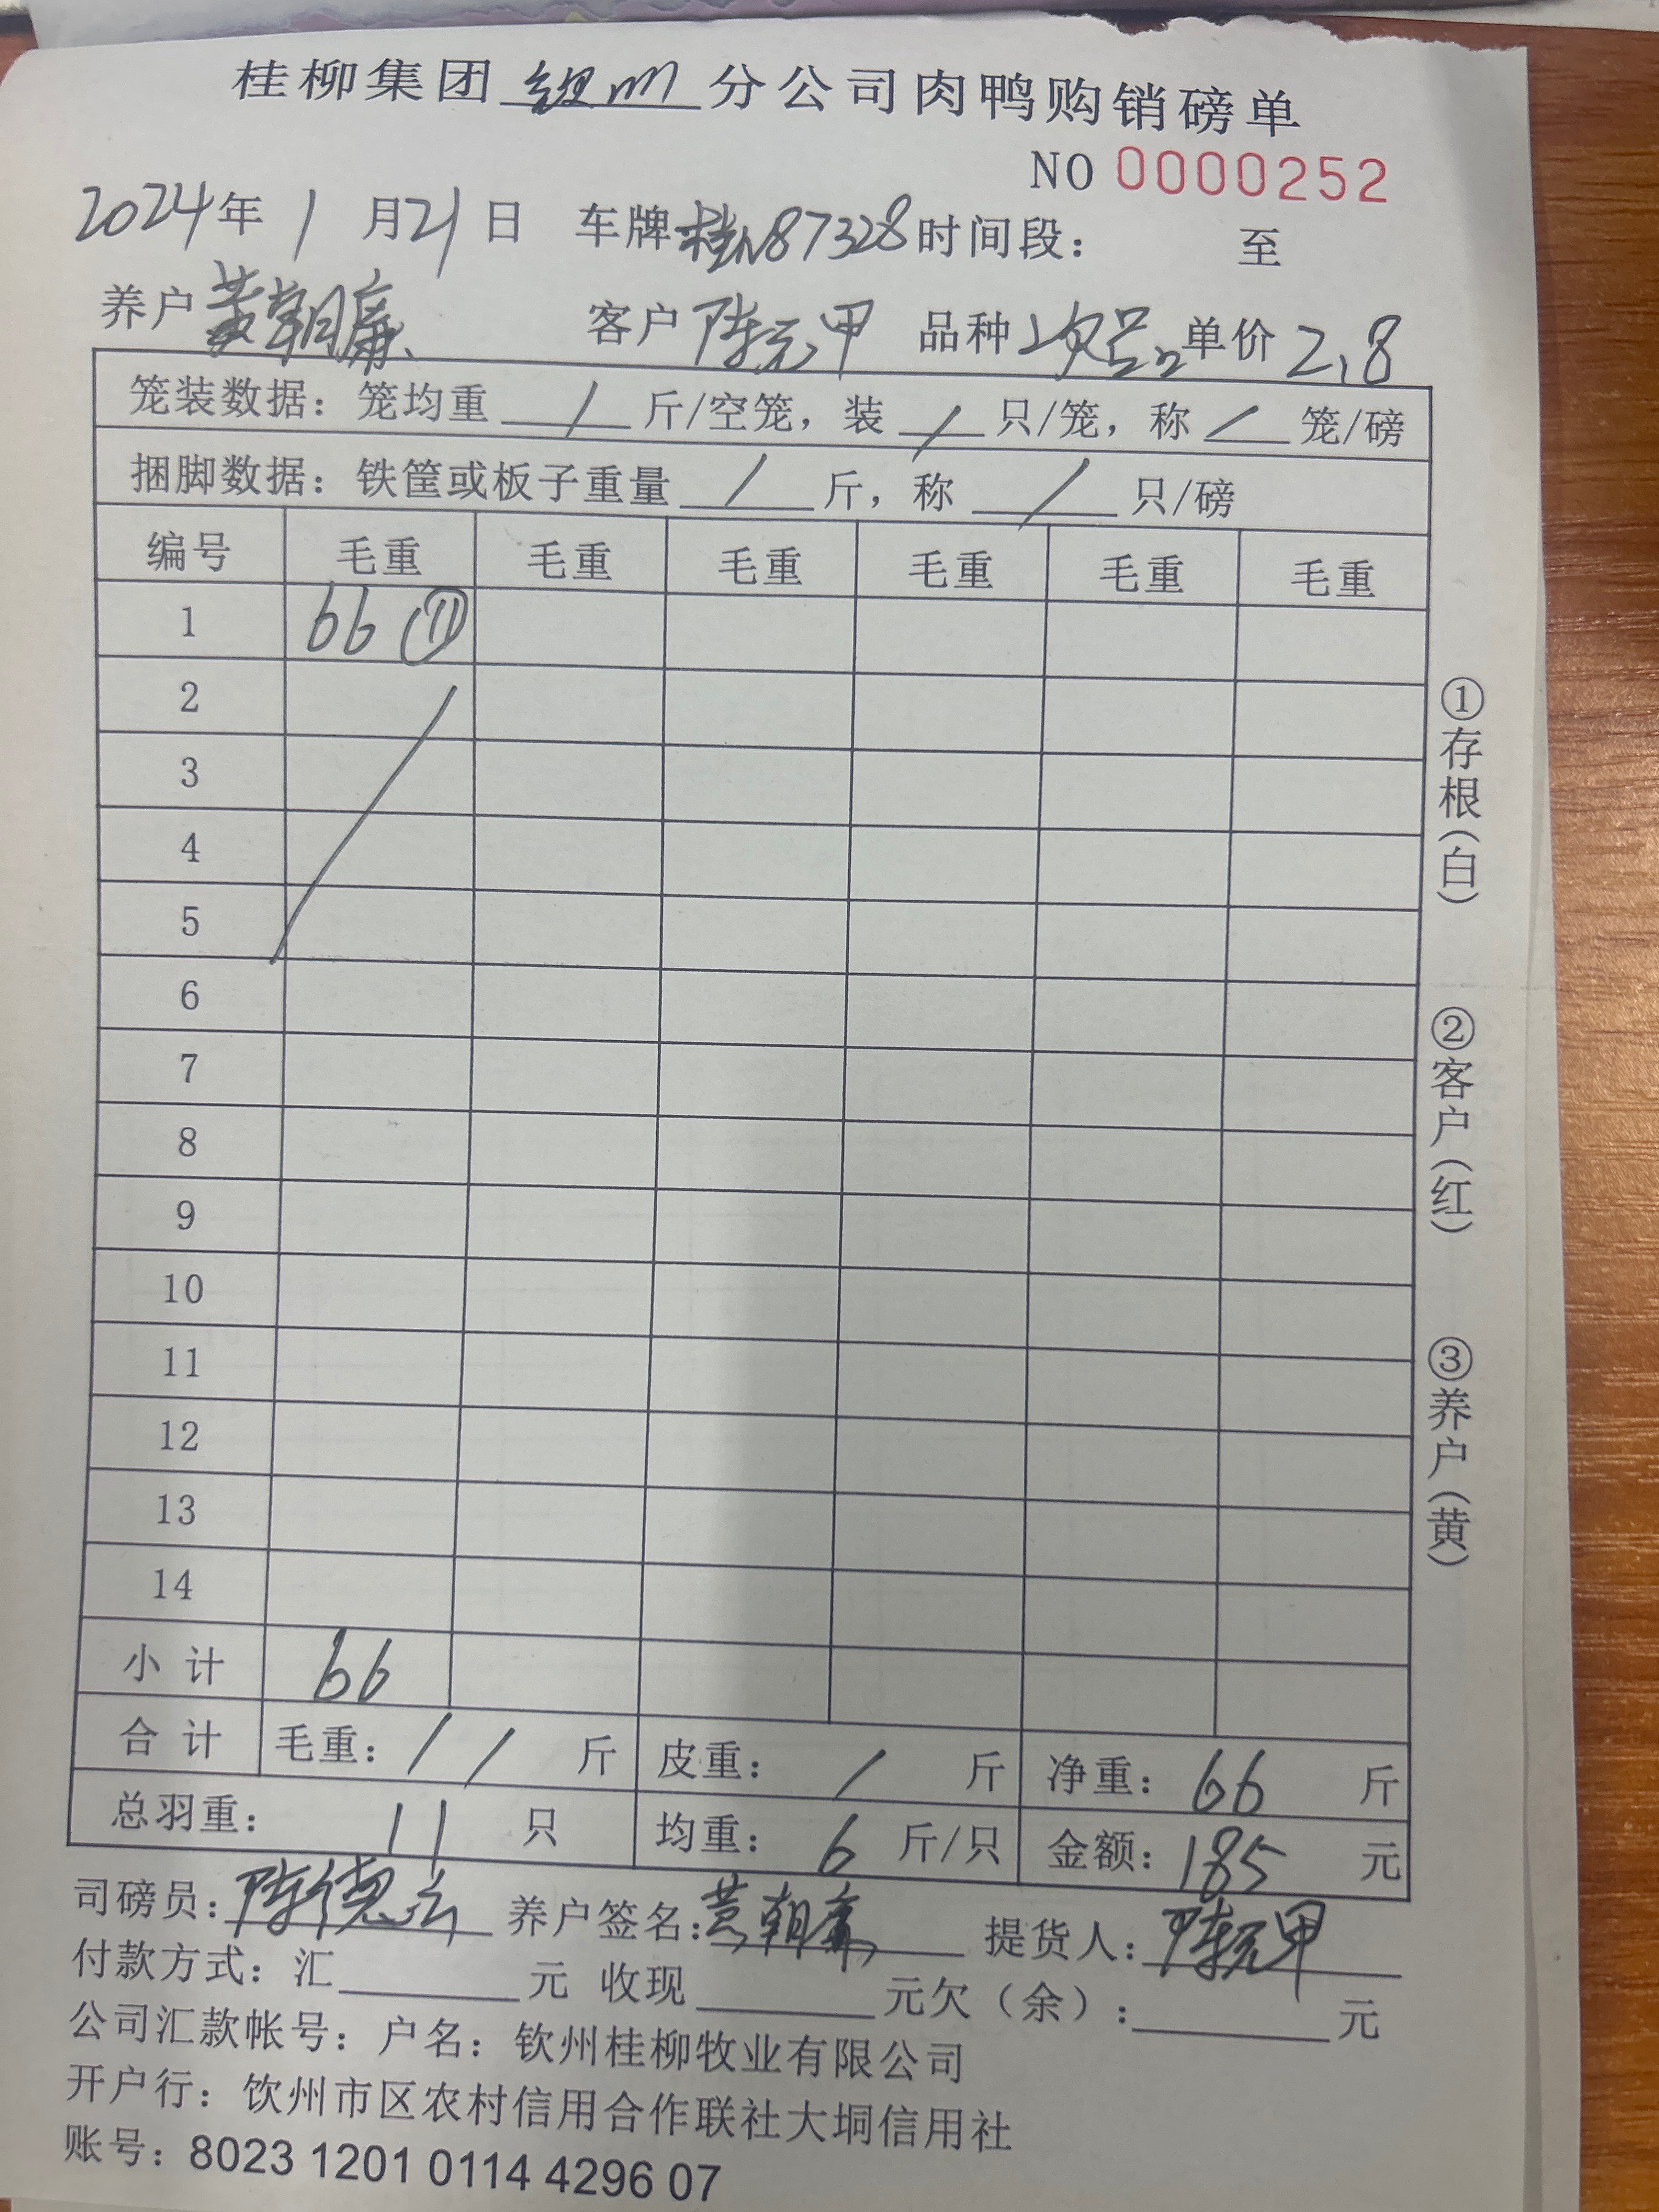 桂柳集团 钦州 分公司肉鸭购销磅单
NO 0000252
2024年 1 月 21 日 车牌 桂N87328 时间段: 至
养户 黄朝 客户 陈元甲 品种 次品 单价 2.8
笼装数据: 笼均重 / 斤/空笼, 装 / 只/笼, 称 / 笼/磅
捆脚数据: 铁筐或板子重量 / 斤, 称 / 只/磅
编号 毛重 毛重 毛重 毛重 毛重 毛重
1 66 ⑪
2
3
4
5
6
7
8
9
10
11
12
13
14
小计 66
合计 毛重: / / 斤 皮重: / 斤 净重: 66 斤
总羽重: 11 只 均重: 6 斤/只 金额: 185 元
①存根(白)
②客户(红)
③养户(黄)
司磅员: 陈德云 养户签名: 黄朝 提货人: 陈元甲
付款方式: 汇 元 收现 元欠(余): 元
公司汇款帐号: 户名: 钦州桂柳牧业有限公司
开户行: 钦州市区农村信用合作联社大垌信用社
账号: 8023 1201 0114 4296 07